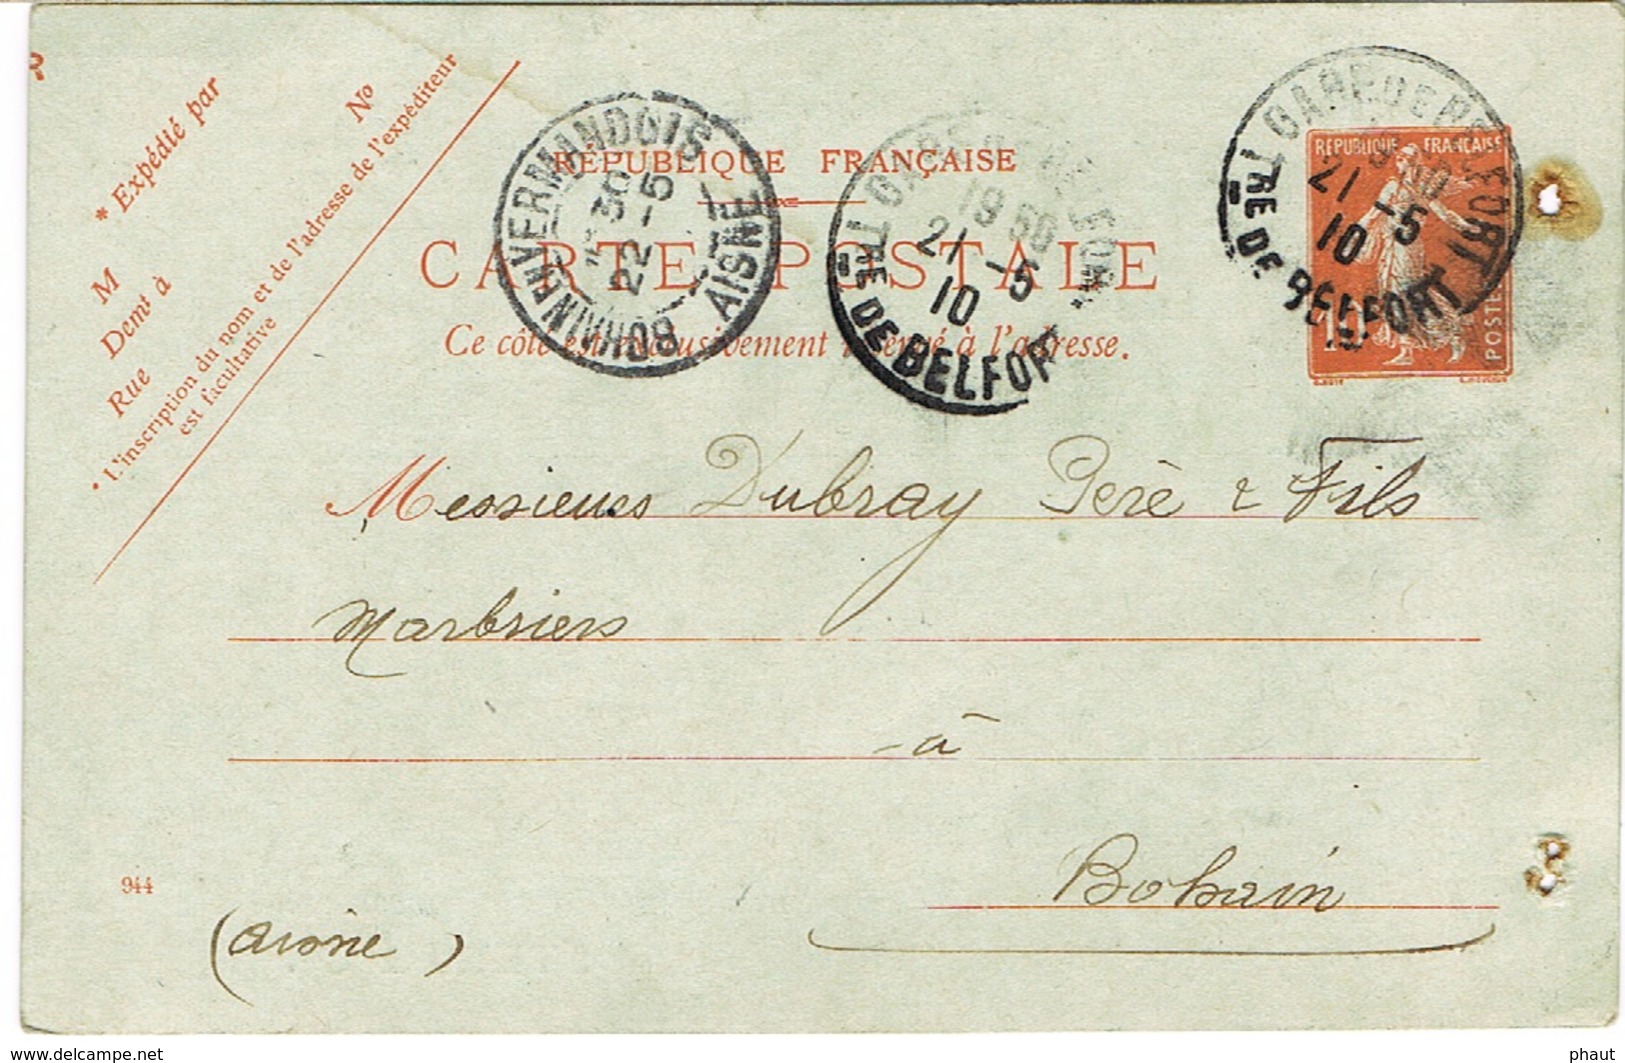 * Expédié par
N°
M
Demt à
Rue
* L'inscription du nom et de l'adresse de l'expéditeur
est facultative
RÉPUBLIQUE FRANÇAISE
CARTE POSTALE
Ce côté est exclusivement réservé à l'adresse.
BOHAIN EN VERMANDOIS
AISNE
22-5
GARE DE
19 50
21 -5
10
TRE DE BELFORT
GARE DE
21 -5
10
TRE DE BELFORT
RÉPUBLIQUE FRANÇAISE
POSTES
Messieurs Dubray Père & Fils
Marbriers
- à
Bohain
(Aisne)
944
www.delcampe.net
phaut